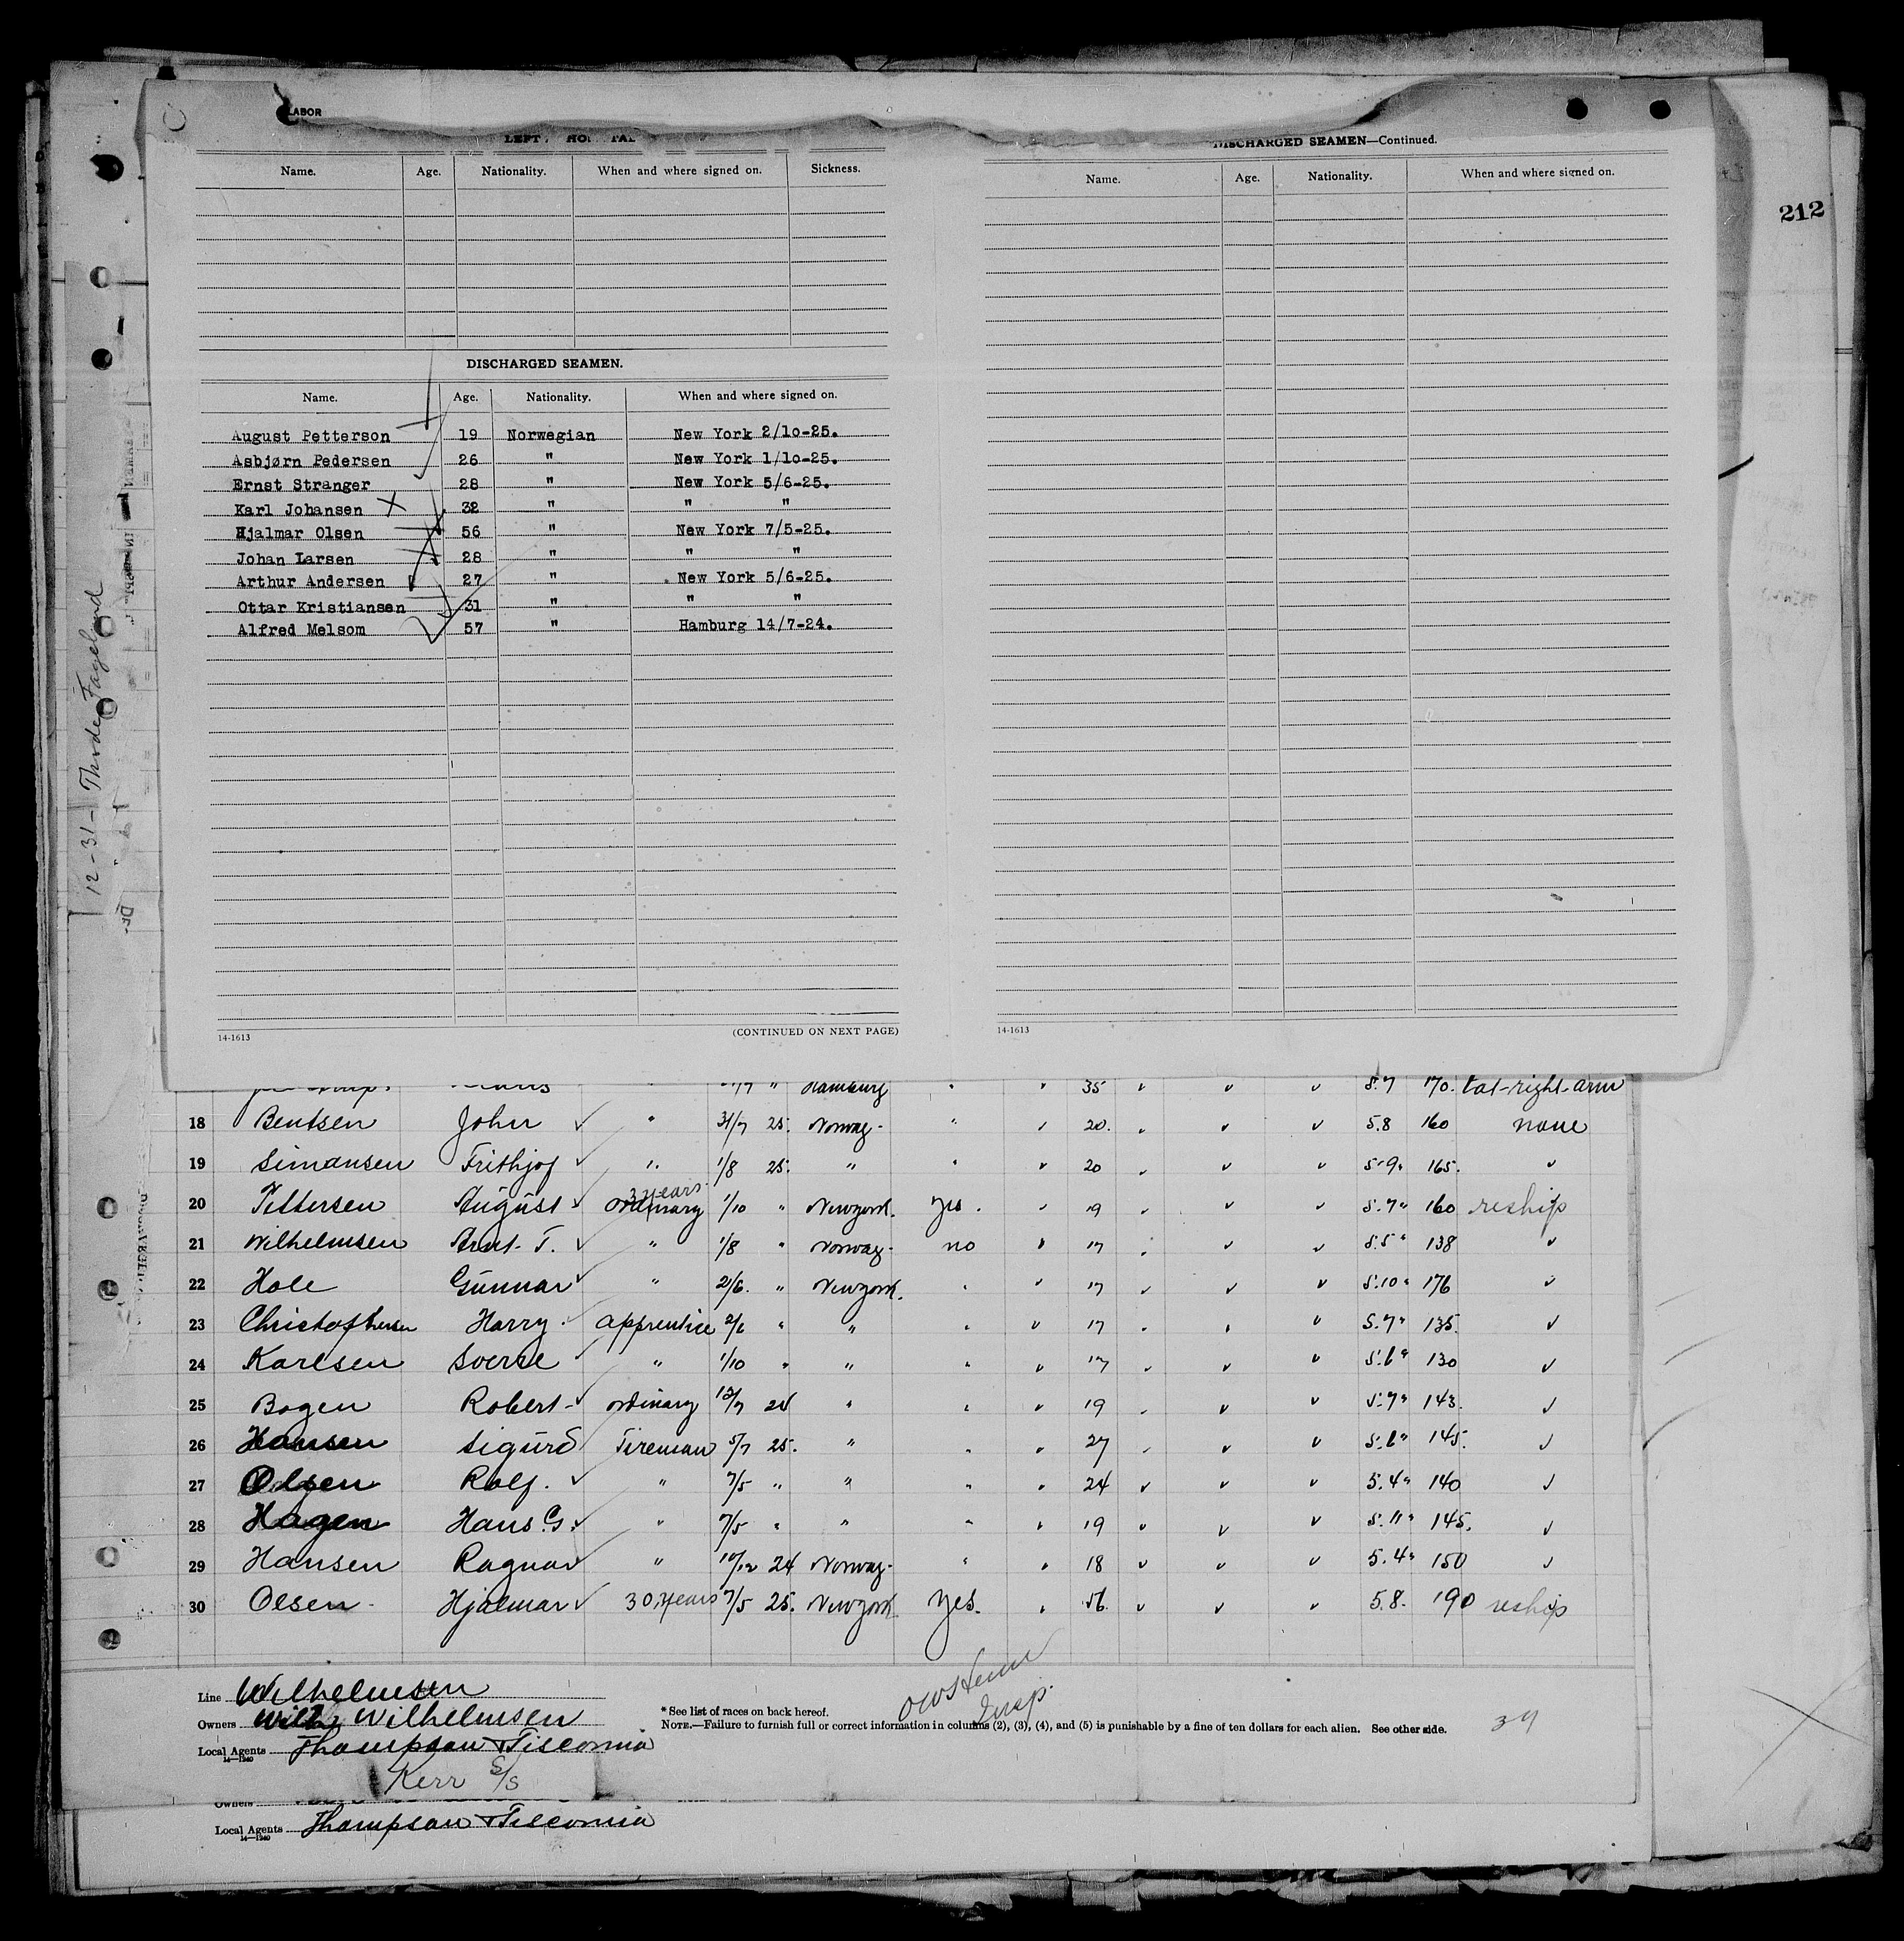 LABOR
212
Name. Age. Nationality. When and where signed on. Sickness.
DISCHARGED SEAMEN.
Name. Age. Nationality. When and where signed on.
August Petterson 19 Norwegian New York 2/10-25.
Asbjørn Pedersen 26 " New York 1/10-25.
Ernst Stranger 28 " New York 5/6-25.
Karl Johansen X 32 " " "
Hjalmar Olsen 56 " New York 7/5-25.
Johan Larsen 28 " " "
Arthur Andersen 27 " New York 5/6-25.
Ottar Kristiansen 31 " " "
Alfred Melsom 57 " Hamburg 14/7-24.
14-1613 (CONTINUED ON NEXT PAGE)
DISCHARGED SEAMEN—Continued.
Name. Age. Nationality. When and where signed on.
14-1613
12-31- Fagelund
" Hamburg " 35 5.7 170. tat-right-arm
18 Bentsen John ✓ " 31/7 25. Norway- " ✓ 20. ✓ ✓ ✓ 5.8 160 none
19 Simonsen Frithjof ✓ " 1/8 25. " " ✓ 20 ✓ ✓ ✓ 5-9" 165. ✓
20 Pettersen August ✓ 3 years ordinary 1/10 " Newyork. Yes. ✓ 19 ✓ ✓ ✓ 5.7" 160 reship
21 Wilhelmsen Arnt. T. ✓ " 1/8 " Norway- no ✓ 17 ✓ ✓ ✓ 5.5" 138 ✓
22 Hole Gunnar ✓ " 2/6. " Newyork. " ✓ 17 ✓ ✓ ✓ 5.10" 176 ✓
23 Christophersen Harry ✓ apprentice 2/6 " " " ✓ 17 ✓ ✓ ✓ 5.7" 135. ✓
24 Karlsen Sverre ✓ " 1/10 " " " ✓ 17 ✓ ✓ ✓ 5.6" 130 ✓
25 Bogen Robert ✓ ordinary 12/7 24 " " ✓ 19 ✓ ✓ ✓ 5.7" 143. ✓
26 Hansen Sigurd ✓ Fireman 5/7 25. " " ✓ 27 ✓ ✓ ✓ 5.6" 145. ✓
27 Olsen Rolf. ✓ " 7/5 " " " ✓ 24 ✓ ✓ ✓ 5.4" 140 ✓
28 Hagen Hans G. ✓ " 7/5 " " " ✓ 19 ✓ ✓ ✓ 5.11" 145. ✓
29 Hansen Ragnar ✓ " 10/12 24 Norway- " ✓ 18 ✓ ✓ ✓ 5.4" 150 ✓
30 Olsen Hjalmar ✓ 30 years 7/5 25. Newyork. Yes. ✓ 56. ✓ ✓ ✓ 5.8. 190 reship
Line Wilhelmsen
Owners Wilh. Wilhelmsen
Local Agents Thompson & Tisconia
14—1240
Kerr S/S
Insp.
* See list of races on back hereof.
NOTE.—Failure to furnish full or correct information in columns (2), (3), (4), and (5) is punishable by a fine of ten dollars for each alien. See other side.
Owners
Local Agents Thompson & Tisconia
14—1240